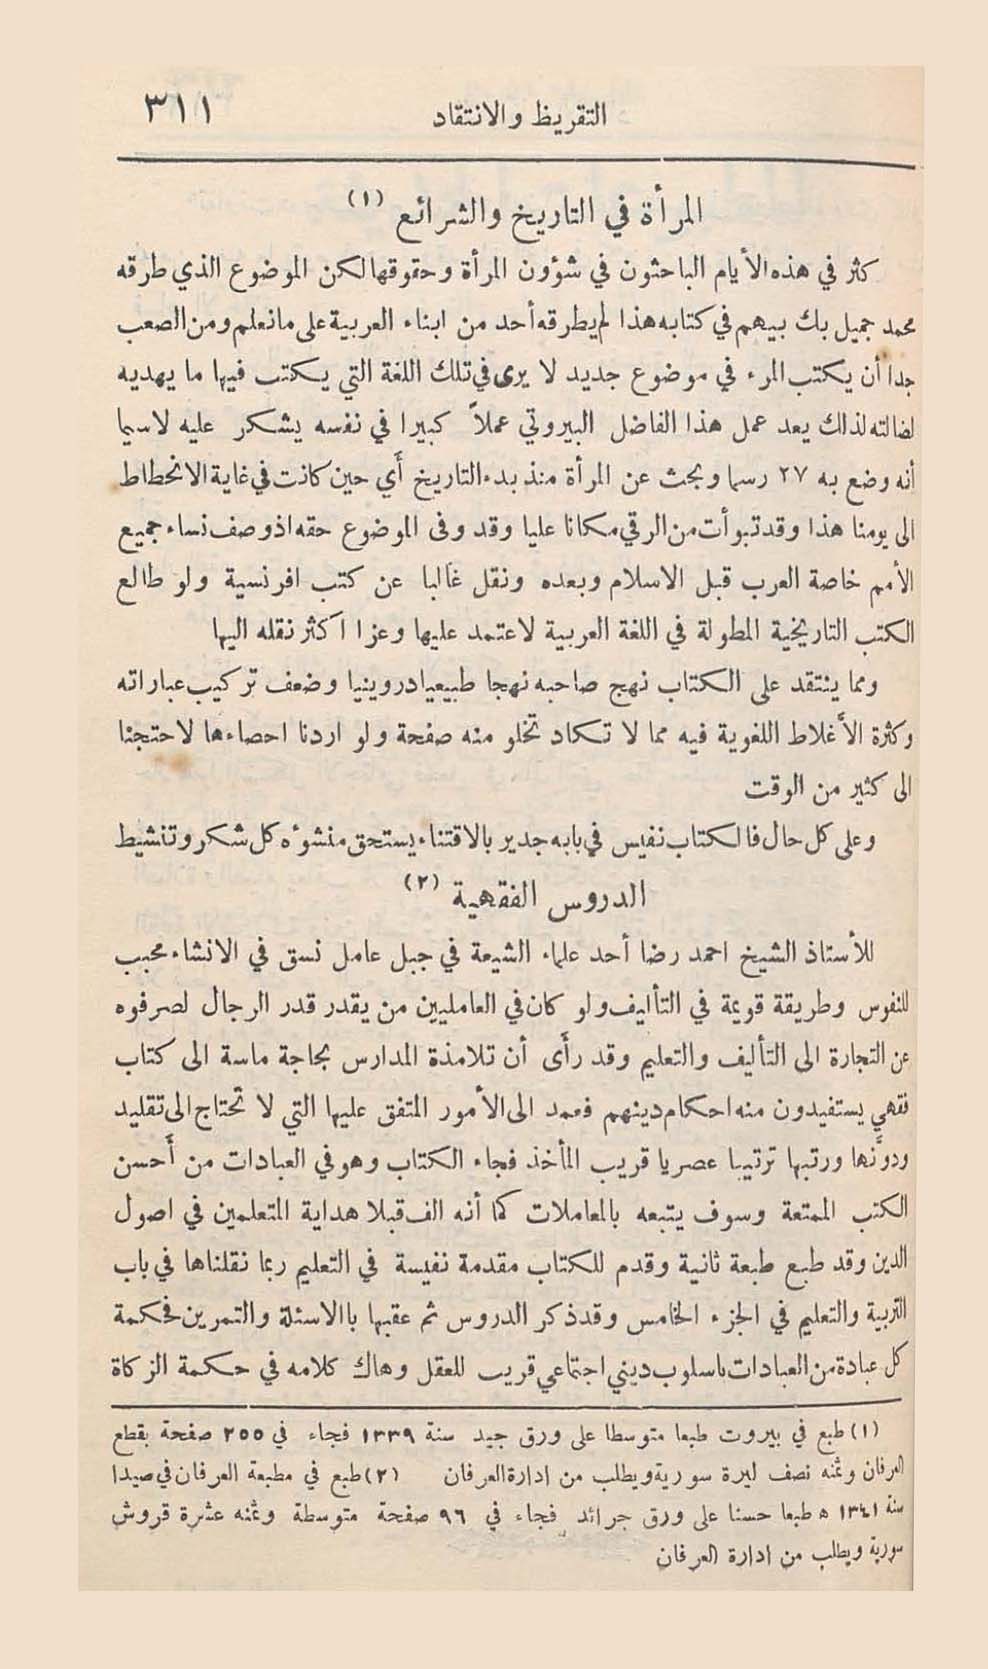 التقريظ والانتقاد
٣١١
المرأة في التاريخ والشرائع (١)
كثر في هذه الأيام الباحثون في شؤون المرأة وحقوقها لكن الموضوع الذي طرقه
محمد جميل بك بيهم في كتابه هذا لم يطرقه أحد من ابناء العربية على ما نعلم ومن الصعب
جدا أن يكتب المرء في موضوع جديد لا يرى في تلك اللغة التي يكتب فيها ما يهديه
لضالته لذلك يعد عمل هذا الفاضل البيروتي عملاً كبيرا في نفسه يشكر عليه لاسيما
أنه وضع به ٢٧ رسما وبحث عن المرأة منذ بدء التاريخ أي حين كانت في غاية الانحطاط
الى يومنا هذا وقد تبوأت من الرقي مكانا عليا وقد وفى الموضوع حقه اذ وصف نساء جميع
الأمم خاصة العرب قبل الاسلام وبعده ونقل غالبا عن كتب افرنسية ولو طالع
الكتب التاريخية المطولة في اللغة العربية لاعتمد عليها وعزا اكثر نقله اليها
ومما ينتقد على الكتاب نهج صاحبه نهجا طبيعيا دروينيا وضعف تركيب عباراته
وكثرة الأغلاط اللغوية فيه مما لا تكاد تخلو منه صفحة ولو اردنا احصاءها لاحتجنا
الى كثير من الوقت
وعلى كل حال فالكتاب نفيس في بابه جدير بالاقتناء يستحق منشؤه كل شكر وتنشيط
الدروس الفقهية (٢)
للأستاذ الشيخ احمد رضا أحد علماء الشيعة في جبل عامل نسق في الانشاء محبب
للنفوس وطريقة قويمة في التأليف ولو كان في العامليين من يقدر قدر الرجال لصرفوه
عن التجارة الى التأليف والتعليم وقد رأى أن تلامذة المدارس بحاجة ماسة الى كتاب
فقهي يستفيدون منه احكام دينهم فعمد الى الأمور المتفق عليها التي لا تحتاج الى تقليد
ودوَّنها ورتبها ترتيبا عصريا قريب المأخذ فجاء الكتاب وهو في العبادات من أحسن
الكتب الممتعة وسوف يتبعه بالمعاملات كما أنه الف قبلا هداية المتعلمين في اصول
الدين وقد طبع طبعة ثانية وقدم للكتاب مقدمة نفيسة في التعليم ربما نقلناها في باب
التربية والتعليم في الجزء الخامس وقد ذكر الدروس ثم عقبها بالاسئلة والتمرين فحكمة
كل عبادة من العبادات باسلوب ديني اجتماعي قريب للعقل وهاك كلامه في حكمة الزكاة
(١) طبع في بيروت طبعا متوسطا على ورق جيد سنة ١٣٣٩ فجاء في ٢٥٥ صفحة بقطع
العرفان وثمنه نصف ليرة سورية ويطلب من ادارة العرفان (٢) طبع في مطبعة العرفان في صيدا
سنة ١٣٤١ ه طبعا حسنا على ورق جرائد فجاء في ٩٦ صفحة متوسطة وثمنه عشرة قروش
سورية ويطلب من ادارة العرفان